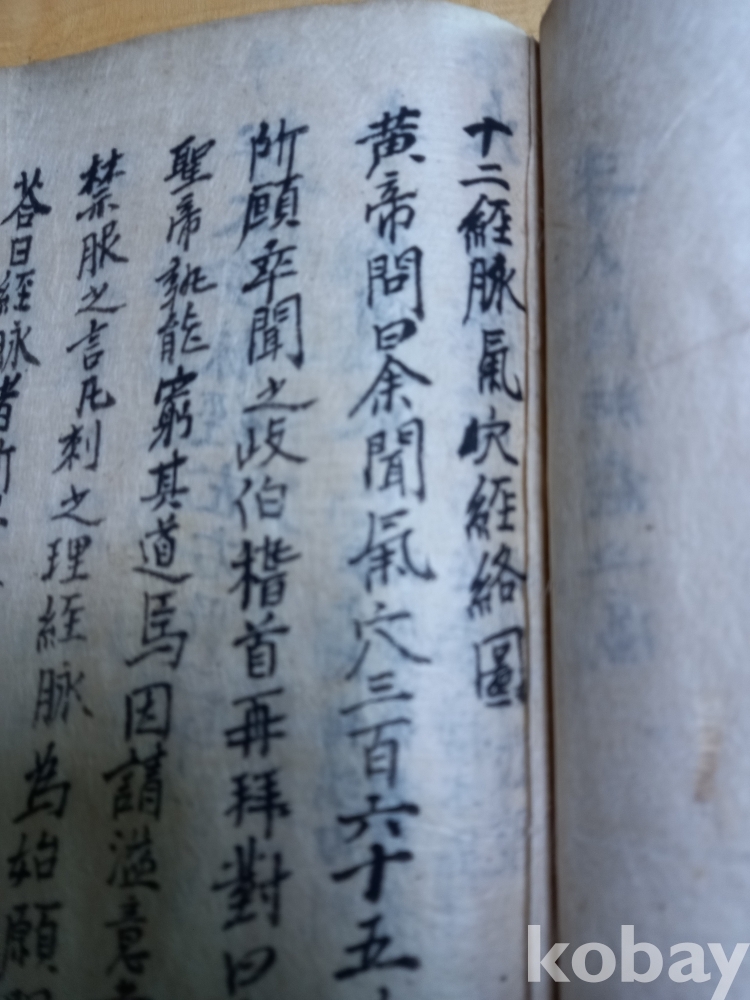 十二經脉氣穴經絡圖
黄帝問曰余聞氣穴三百六十五
所願卒聞之岐伯稽首再拜對曰
聖帝孰能窮其道焉因請溢意
禁服之言凡刺之理經脉為始願
荅曰經脉者所
kobay